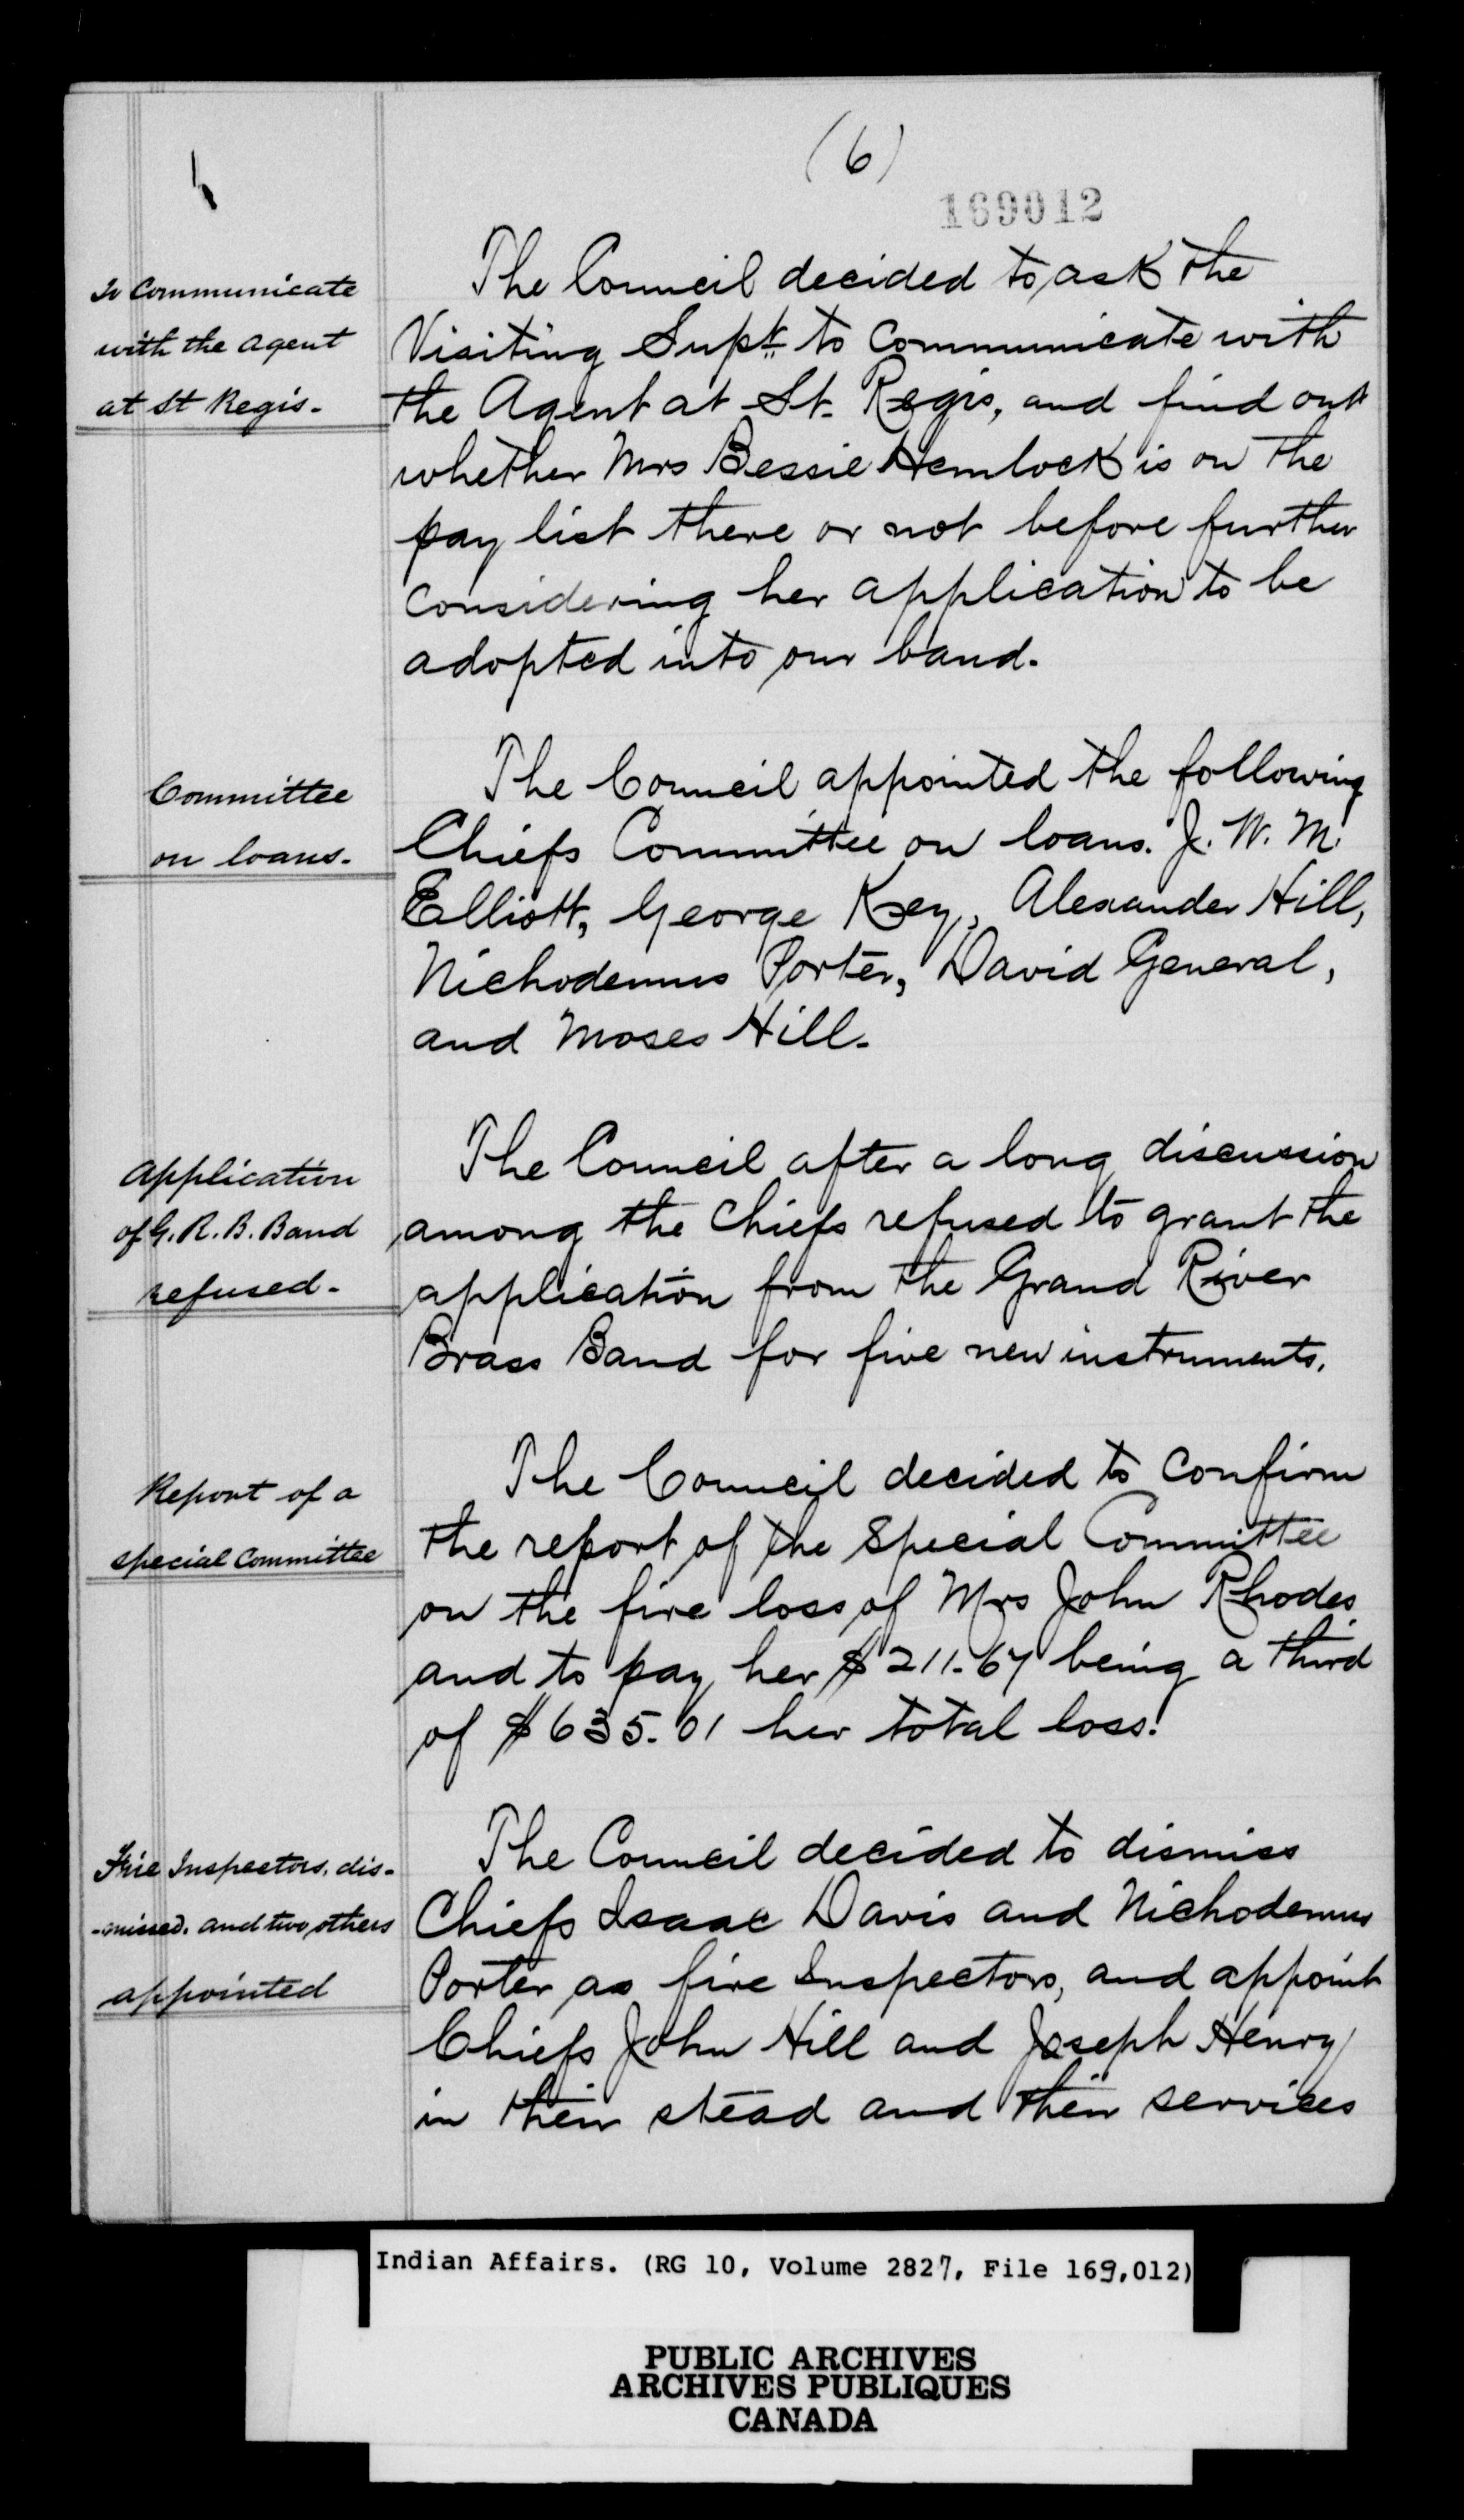 (6)
169012
To Communicate
with the Agent
at St Regis.
The Council decided to ask the
Visiting Supt. to Communicate with
the Agent at St. Regis, and find out
whether Mrs Bessie Hemlock is on the
pay list there or not before further
considering her application to be
adopted into our band.
Committee
on loans.
The Council appointed the following
Chiefs Committee on loans. J. W. M.
Elliott, George Key, Alexander Hill,
Nichodemus Porter, David General,
and Moses Hill.
Application
of G. R. B. Band
refused.
The Council after a long discussion
among the Chiefs refused to grant the
application from the Grand River
Brass Band for five new instruments.
Report of a
special Committee
The Council decided to Confirm
the report of the Special Committee
on the fire loss of Mrs John Rhodes
and to pay her $211.67 being a third
of $635.01 her total loss.
Fire Inspectors. dis-
-missed. and two others
appointed
The Council decided to dismiss
Chiefs Isaac Davis and Nichodemus
Porter as fire Inspectors, and appoint
Chiefs John Hill and Joseph Henry
in their stead and their services
Indian Affairs. (RG 10, Volume 2827, File 169,012)
PUBLIC ARCHIVES
ARCHIVES PUBLIQUES
CANADA